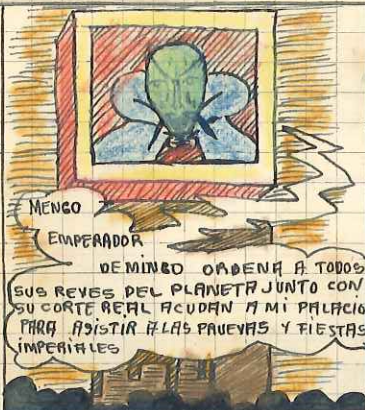 MENGO
EMPERADOR
DE MINGO ORDENA A TODOS
SUS REYES DEL PLANETA JUNTO CON
SU CORTE REAL ACUDAN A MI PALACIO
PARA ASISTIR A LAS PRUEVAS Y FIESTAS
IMPERIALES